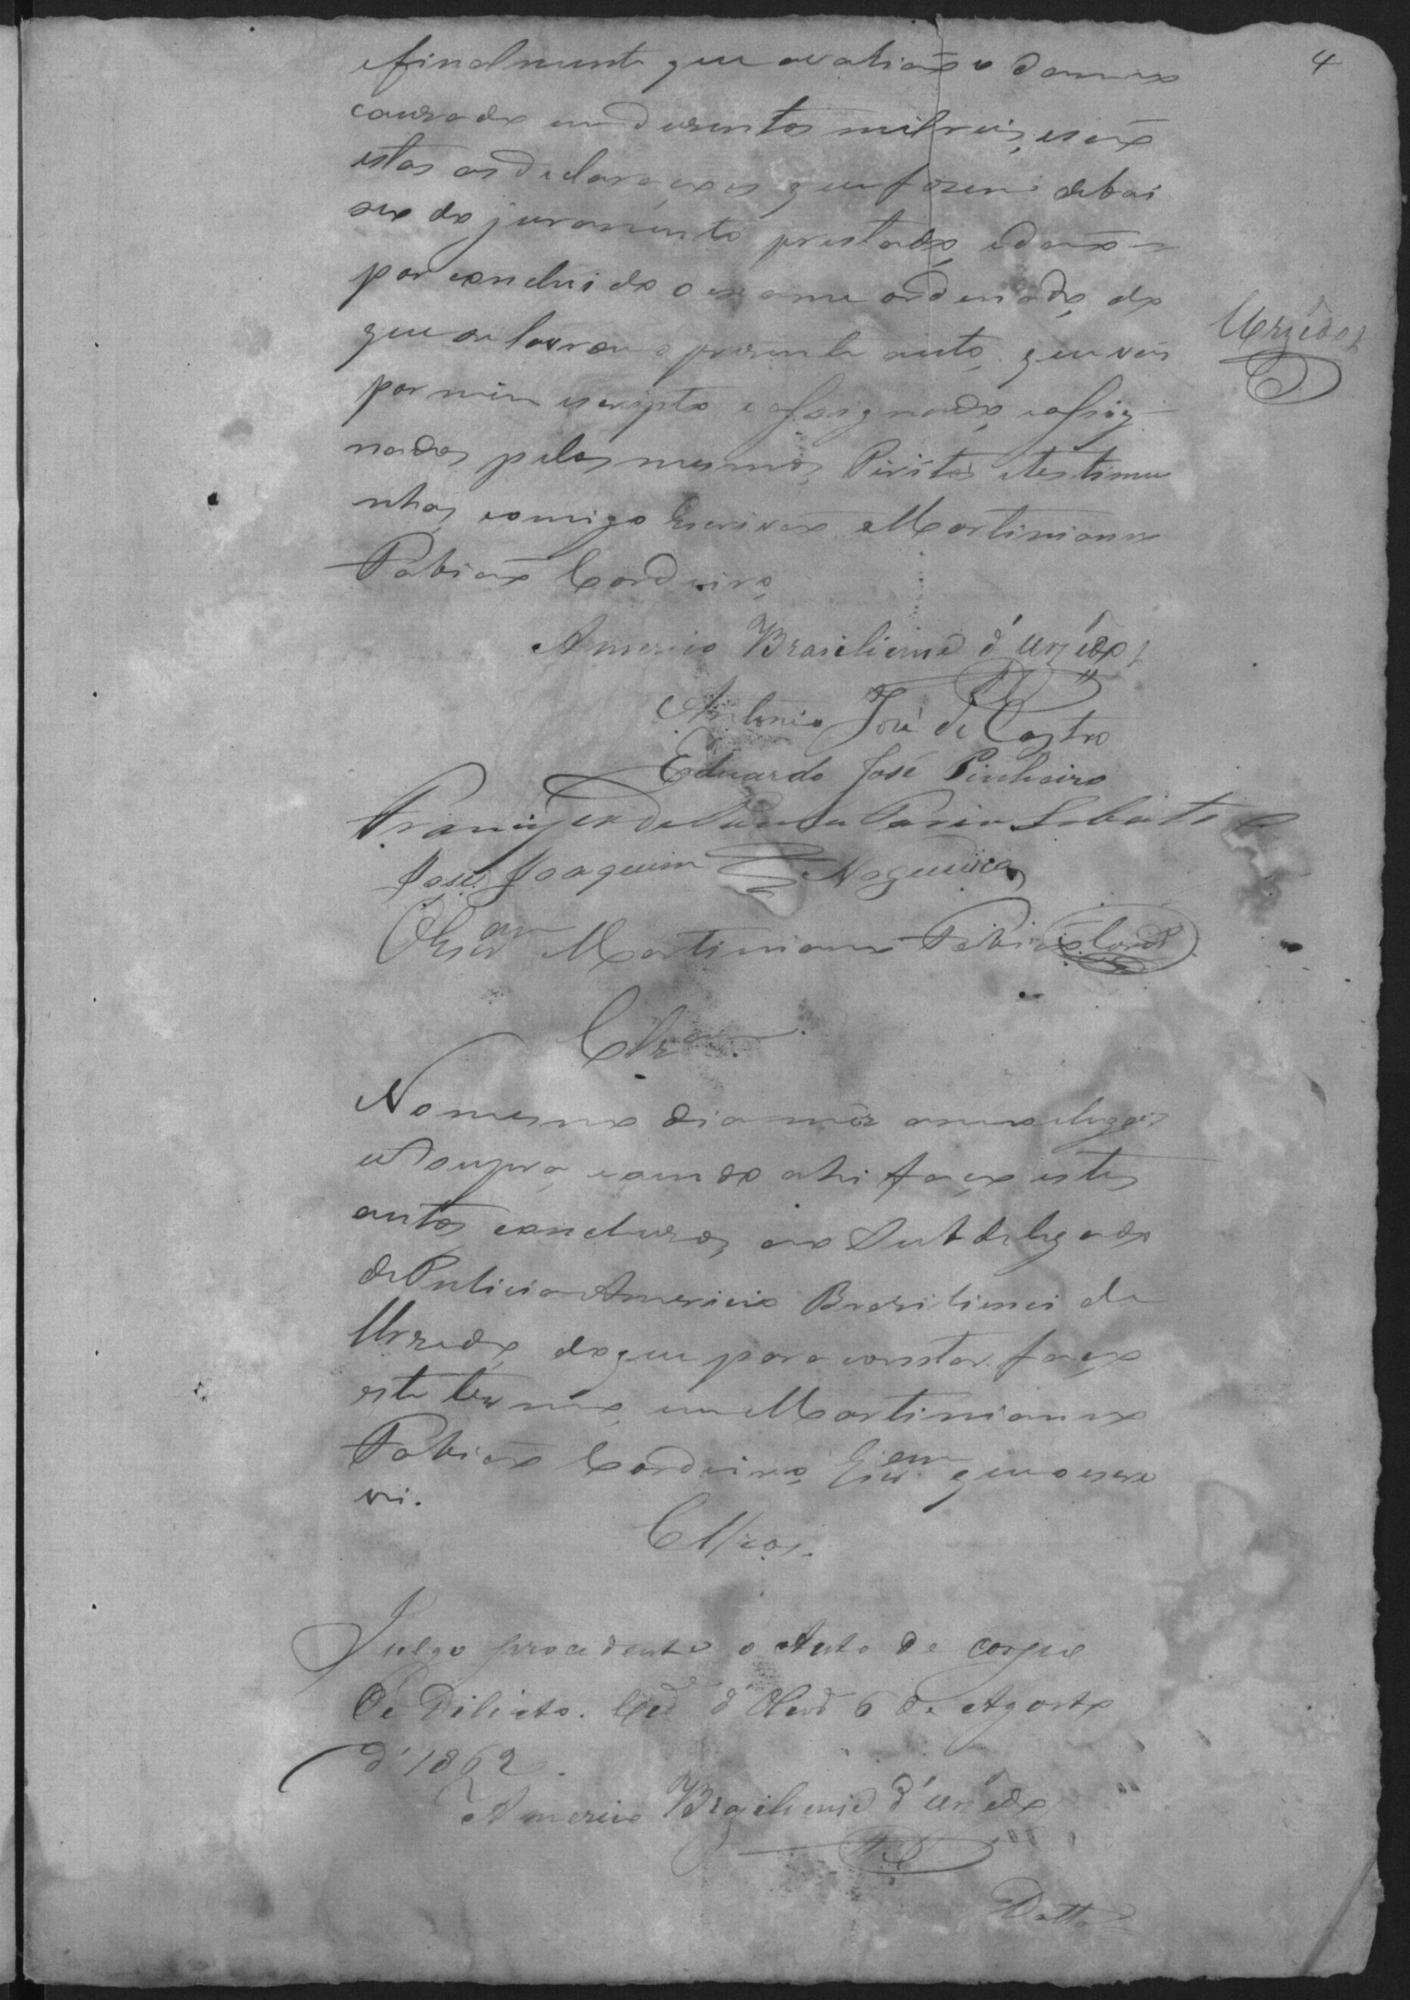 4
e finalmente que avalião o damno
causado em duzentos mil reis, e são
estas as declarações que fazem debai
xo do juramento prestado, e dão
por concluido o exame ordenado, do
que se lavrou o presente auto, que vai
por mim escripto e assignado, e assig
nados pelos mesmos Peritos e testimu
nhas, comigo Escrivão Martiniano
Fabião Cordeiro,
Urzêdo
Americo Brasiliense d'Urzêdo
Antonio José de Castro
Eduardo José Pinheiro
Francisco de Paula
José Joaquim Nogueira
O Escram Martiniano Fabião Cordo
Clzo.
No mesmo dia mez anno e lugar
ut supra, e sendo ahi faço estes
autos conclusos, ao Subdelegado
de Pulicia Americio Brasiliense de
Urzedo, do que para constar faço
este termo, eu Martiniano
Fabião Cordeiro, Escram que o escre
vi.
Clzos.
Julgo procedente o Auto de corpo
de Dilicto. 6 de Agosto
d'1862.
Americo Brasiliense d'Urzêdo
Datta